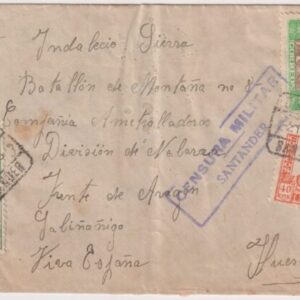 Indalecio Sierra
Batallón de Montaña nº
Compañia Ametralladoras
División de Nabarra
Frente de Aragón
Gabiñañigo
Viva España
Hues
CENSURA MILITAR
SANTANDER
40